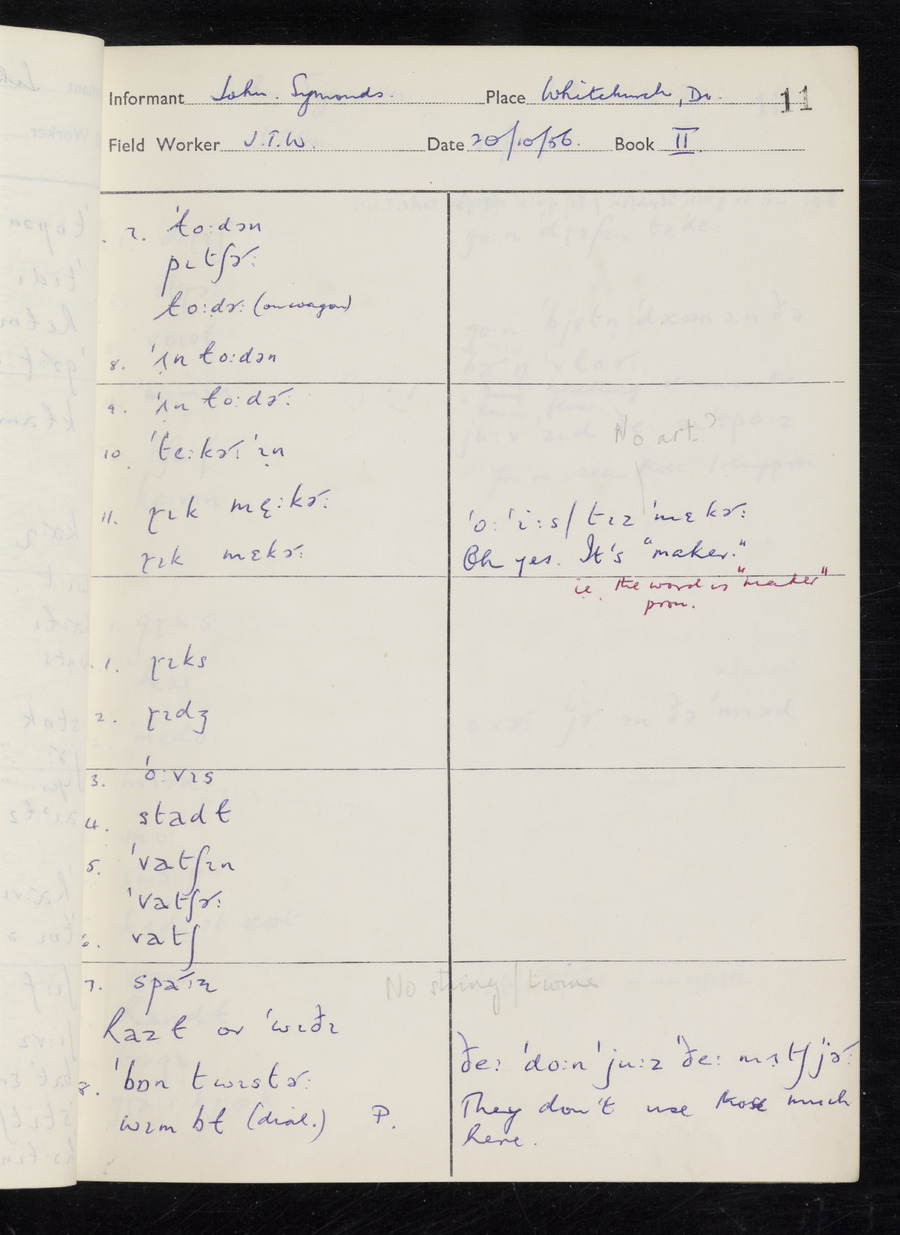 Informant John. Symonds. Place Whitchurch, Do. 11
Field Worker J.T.W. Date 20/10/56. Book II
7. ˈto:dən
pɪtʃɚ:
to:dɚ: (on wagon)
8. ˈɪn to:dən
9. ˈɪn to:dɚ:
10 ˈte:kɚ: ˈɪn
No art?
11. ɽɪk mɛ̣:kɚ:
ɽɪk mɛkɚ:
ˈo: ˈi:s / tɪz ˈmɛkɚ:
Oh yes. It's "maker."
ie. the word is "maker"
pron.
1. ɽɪks
2. ɽɪdʒ
3. ˈo:vɪs
4. stadt
5. ˈvatʃɪn
ˈvatʃɚ:
6. vatʃ
7. spa:ɪz
No string / twine
hazt or ˈwɪðɪ
8. ˈbɒn twɪstɚ:
wɪm bt (dial.) P.
ðe: ˈdo:nˈ ju:z ˈðe: mɪtʃ ˈjɚ:
They don't use those much
here.